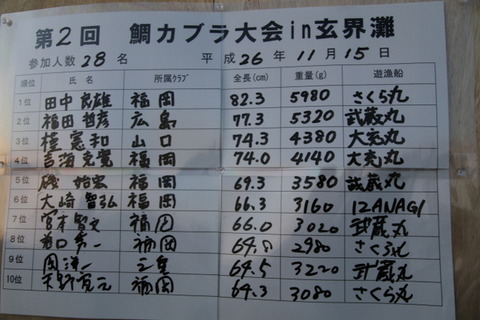 第2回 鯛カブラ大会in玄界灘
参加人数 28名 平成26年11月15日
順位 氏名 所属クラブ 全長(cm) 重量(g) 遊漁船
1位 田中良雄 福岡 82.3 5980 さくら丸
2位 福田哲彦 広島 77.3 5320 武蔵丸
3位 桂憲和 山口 74.3 4380 大完丸
4位 福岡 74.0 4140 大完丸
5位 福岡 69.3 3580 武蔵丸
6位 大崎智弘 福岡 66.3 3160 IZANAGI
7位 宮本智史 福岡 66.0 3020 武蔵丸
8位 福岡 2980 さくら丸
9位 広島 64.5 3220 武蔵丸
10位 天野寛元 福岡 64.3 3080 さくら丸